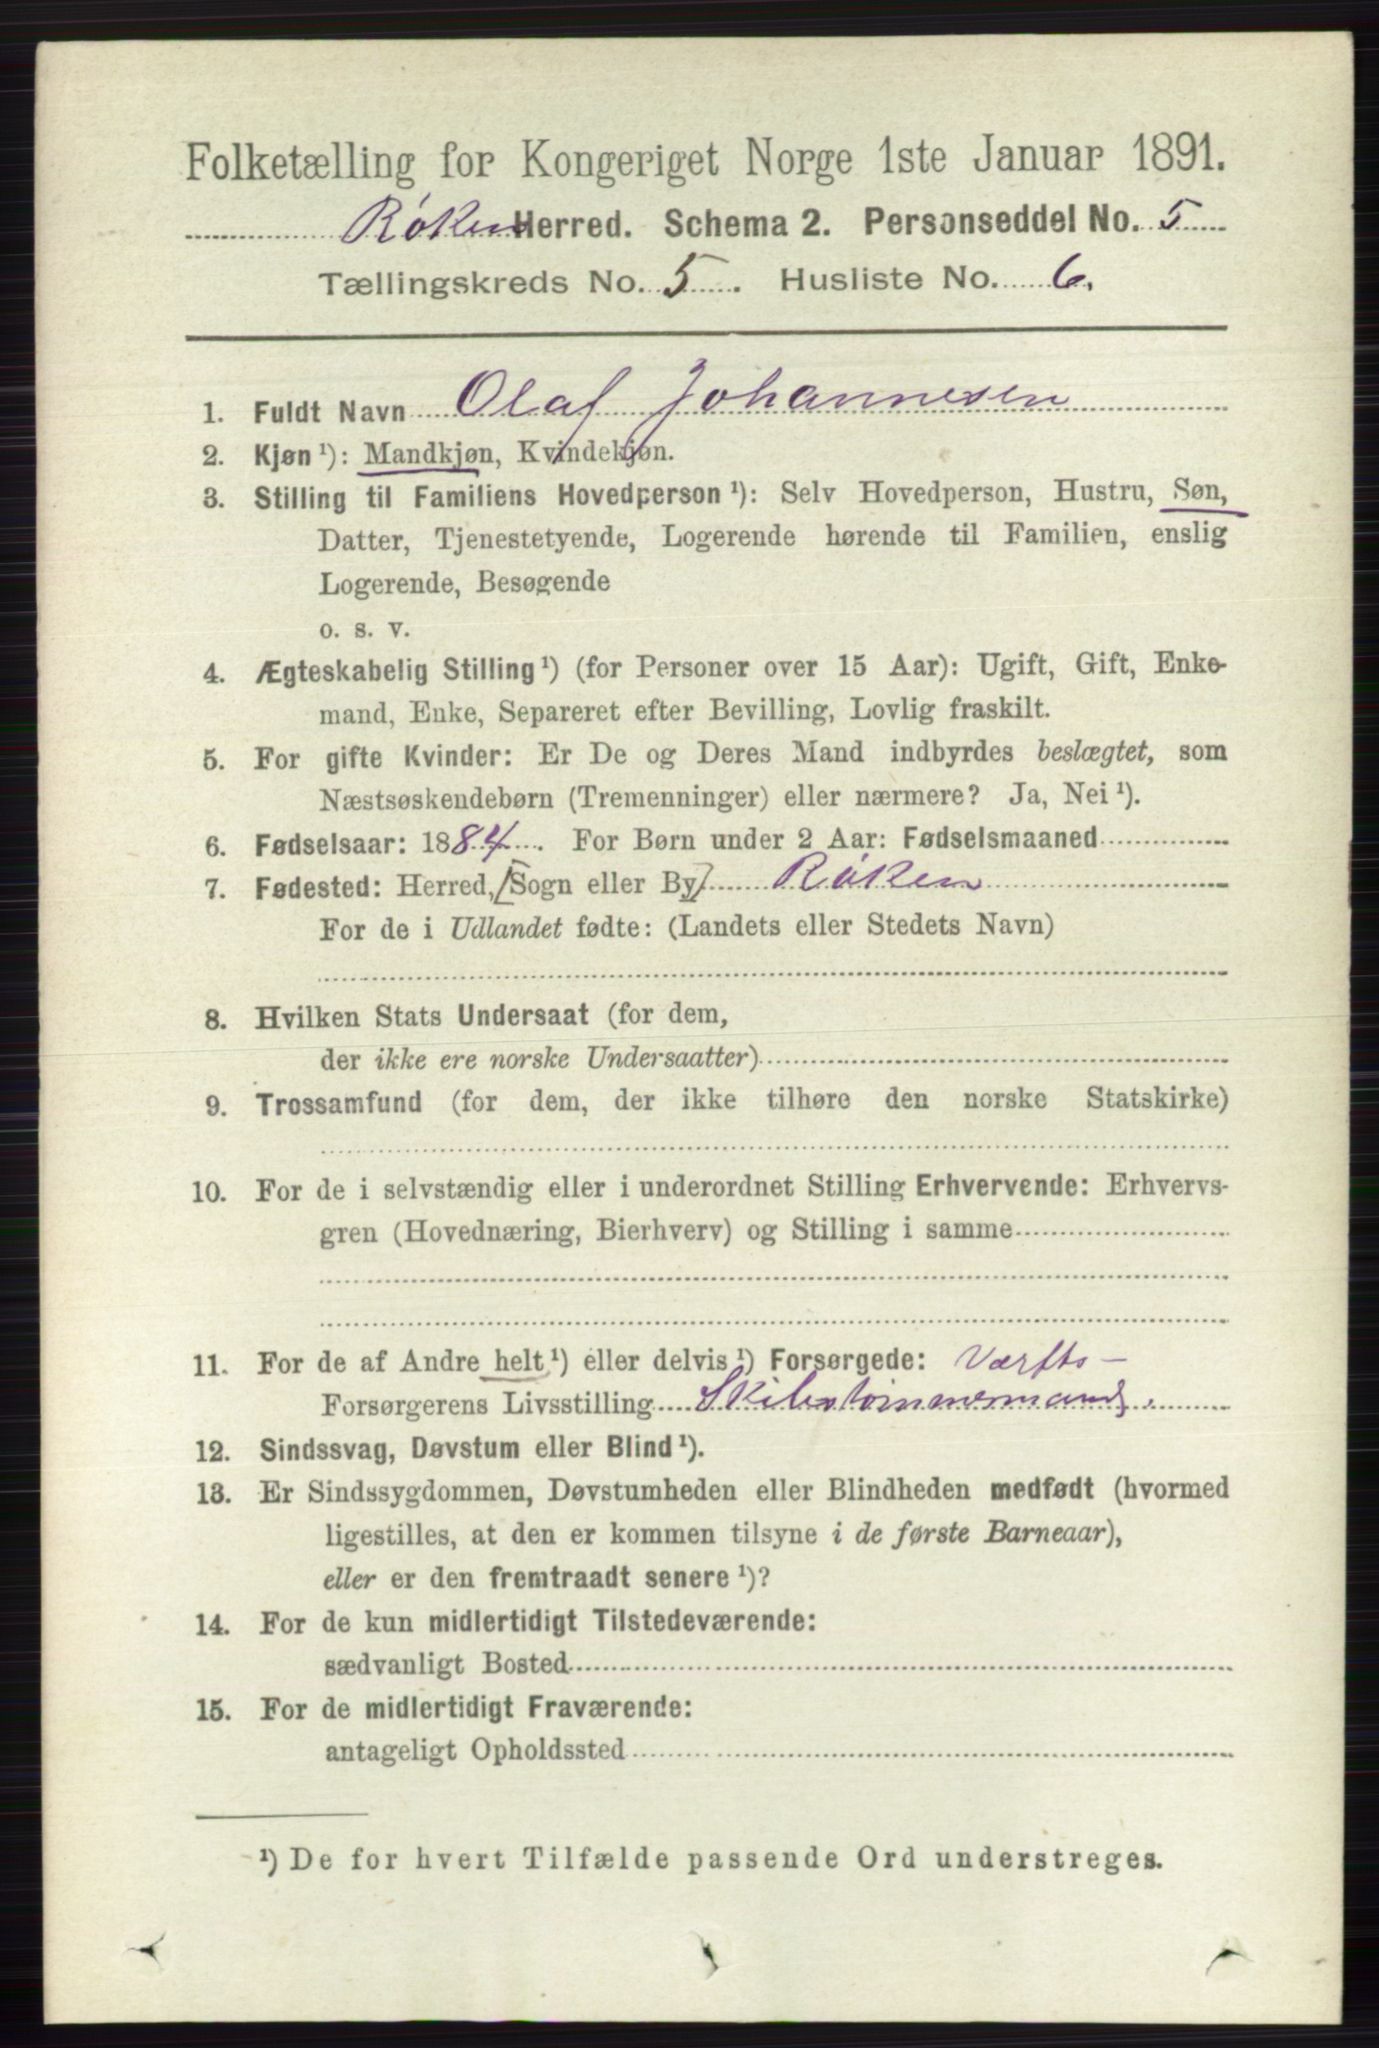 Folketælling for Kongeriget Norge 1ste Januar 1891.
Røken Herred. Schema 2. Personseddel No. 5
Tællingskreds No. 5. Husliste No. 6.
1. Fuldt Navn Olaf Johannesen
2. Kjøn ¹): Mandkjøn, Kvindekjøn.
3. Stilling til Familiens Hovedperson ¹): Selv Hovedperson, Hustru, Søn,
Datter, Tjenestetyende, Logerende hørende til Familien, enslig
Logerende, Besøgende
o. s. v.
4. Ægteskabelig Stilling ¹) (for Personer over 15 Aar): Ugift, Gift, Enke-
mand, Enke, Separeret efter Bevilling, Lovlig fraskilt.
5. For gifte Kvinder: Er De og Deres Mand indbyrdes beslægtet, som
Næstsøskendebørn (Tremenninger) eller nærmere? Ja, Nei ¹).
6. Fødselsaar: 1884. For Børn under 2 Aar: Fødselsmaaned
7. Fødested: Herred, [Sogn eller By] Røken
For de i Udlandet fødte: (Landets eller Stedets Navn)
8. Hvilken Stats Undersaat (for dem,
der ikke ere norske Undersaatter)
9. Trossamfund (for dem, der ikke tilhøre den norske Statskirke)
10. For de i selvstændig eller i underordnet Stilling Erhvervende: Erhvervs-
gren (Hovednæring, Bierhverv) og Stilling i samme
11. For de af Andre helt ¹) eller delvis ¹) Forsørgede: Værfts-
Forsørgerens Livsstilling Skibstømmermand.
12. Sindssvag, Døvstum eller Blind ¹).
13. Er Sindssygdommen, Døvstumheden eller Blindheden medfødt (hvormed
ligestilles, at den er kommen tilsyne i de første Barneaar),
eller er den fremtraadt senere ¹)?
14. For de kun midlertidigt Tilstedeværende:
sædvanligt Bosted
15. For de midlertidigt Fraværende:
antageligt Opholdssted
¹) De for hvert Tilfælde passende Ord understreges.